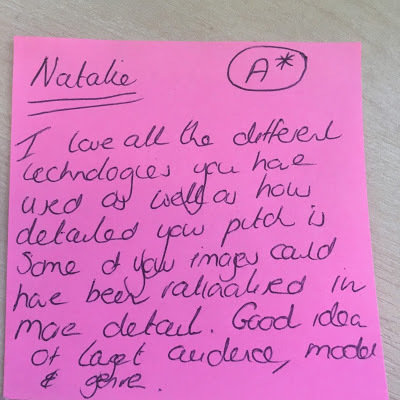 Natalie
A*
I love all the different
technologies you have
used as well as how
detailed your pitch is
Some of your images could
have been rationalised in
more detail. Good idea
of target audience, model
& genre.